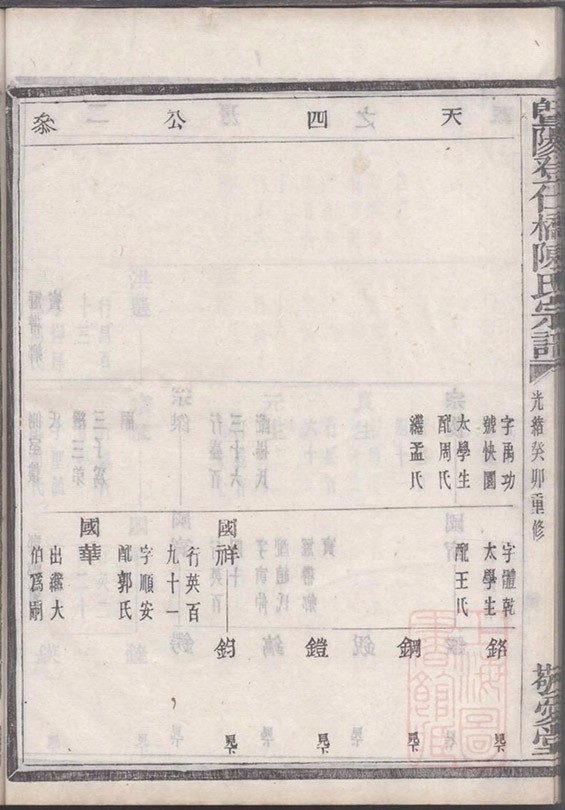 曁陽登仁橋陳氏宗譜
光緒癸卯重修
敬愛堂
天四公叅
字禹功
號快園
太學生
配周氏
繼孟氏
字體乾
太學生
配王氏
鉻
見下
鋼
見下
鎧
見下
國祥
鈞
見下
行英百
九十一
字順安
配郭氏
國華
出繼大
伯爲嗣